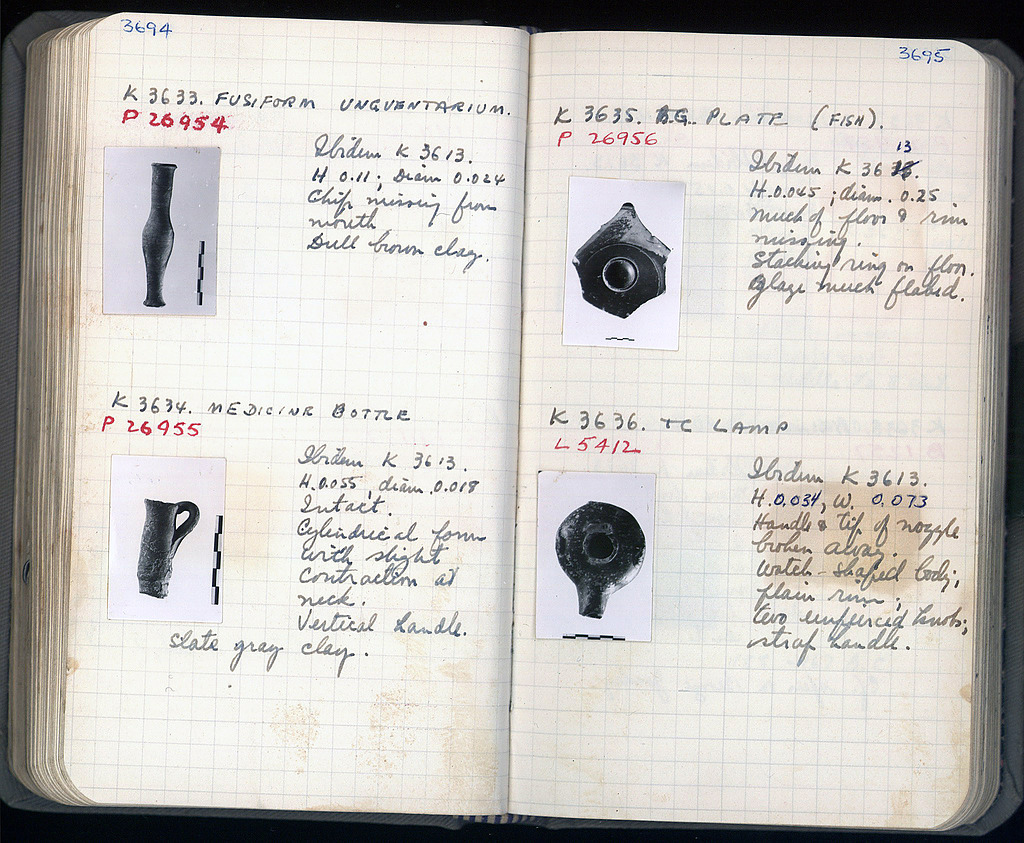 3694
K 3633. FUSIFORM UNGUENTARIUM.
P 26954
Ibidem K 3613.
H 0.11; Diam 0.024
Chip missing from
mouth
Dull brown clay.
K 3634. MEDICINE BOTTLE
P 26955
Ibidem K 3613.
H. 0.055, diam. 0.018
Intact.
Cylindrical form
with slight
contraction at
neck.
Vertical handle.
Slate gray clay.
3695
K 3635. B.G. PLATE (FISH).
P 26956
13
Ibidem K 36
H. 0.045; diam. 0.25
Much of floor & rim
missing.
Stacking ring on floor.
Glaze much flaked.
K 3636. TC LAMP
L 5412
Ibidem K 3613.
H. 0.034, W. 0.073
Handle & tip of nozzle
broken away.
Watch-shaped body;
plain rim;
two unpierced knobs;
strap handle.